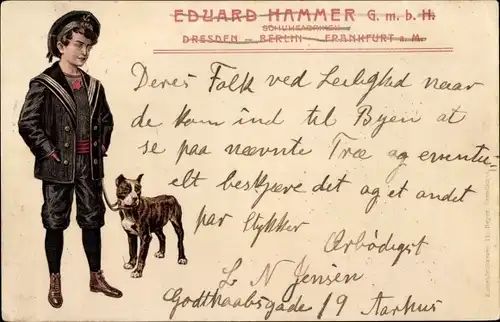 EDUARD HAMMER G. m. b. H.
SCHUHFABRIKEN
DRESDEN – BERLIN – FRANKFURT a. M.
Deres Folk ved Leilighed naar
de kom ind til Byen at
se paa nævnte Træ og eventu-
elt beskjære det og et andet
par Stykker
Arbödigst
L N Jensen
Godthaabsgade 19 Aarhus